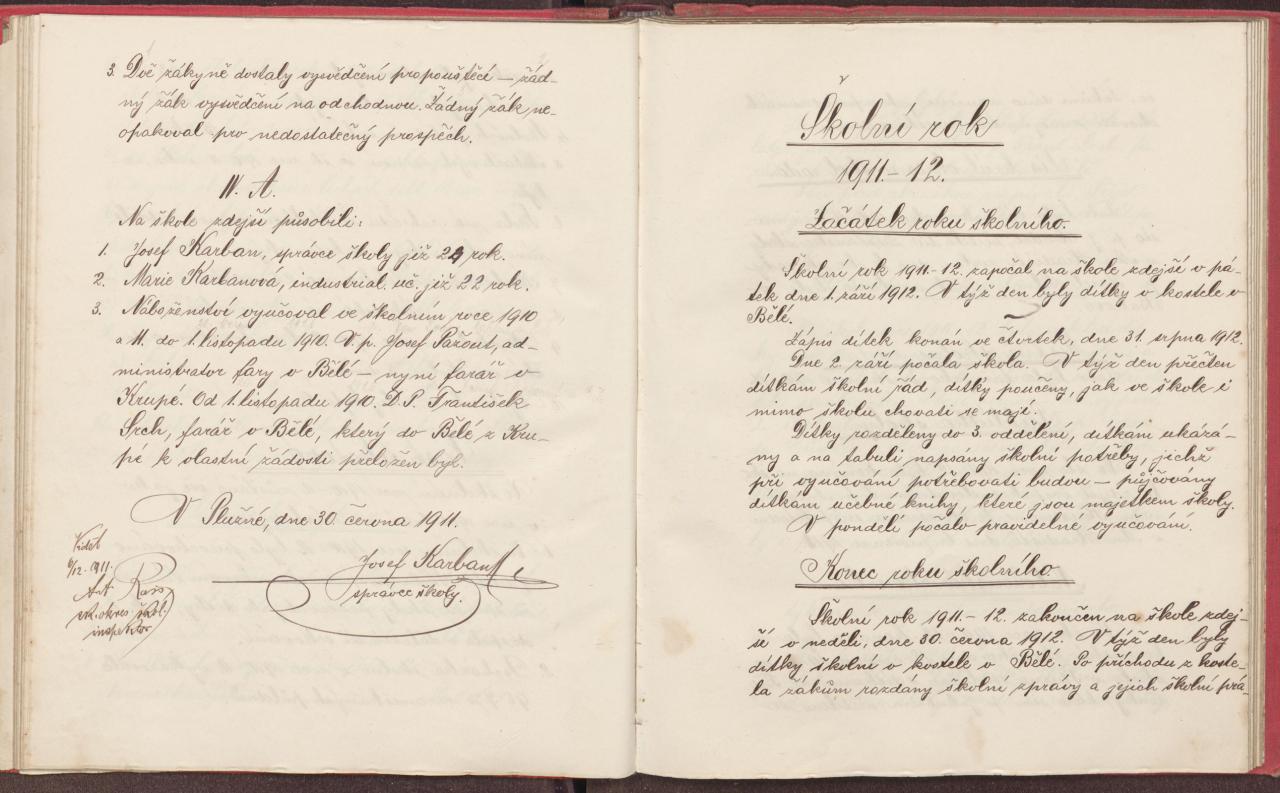 3. Dvě žákyně dostaly vysvědčení propouštěcí — žád-
ný žák vysvědčení na odchodnou. Žádný žák ne-
opakoval pro nedostatečný prospěch.
IV. A.
Na škole zdejší působili:
1. Josef Karban, správce školy již 24 rok.
2. Marie Karbanová, industrial. uč. již 22 rok.
3. Náboženství vyučoval ve školním roce 1910
a 11. do 1. listopadu 1910. V. p. Josef Pažout, ad-
ministrator fary v Bělé — nyní farář v
Krupé. Od 1. listopadu 1910. D. P. František
Srch, farář v Bělé, který do Bělé z Kru-
pé k vlastní žádosti přeložen byl.
V Plužné, dne 30. června 1911.
Josef Karban
správce školy.
Viděl
6/12. 1911.
Ant.
okres. škol.
inspektor
Školní rok
1911.- 12.
Začátek roku školního.
Školní rok 1911.- 12. započal na škole zdejší v pá-
tek dne 1. září 1912. V týž den byly dítky v kostele v
Bělé.
Zápis dítek konán ve čtvrtek, dne 31. srpna 1912.
Dne 2. září počala škola. V týž den přečten
dítkám školní řád, dítky poučeny, jak ve škole i
mimo školu chovati se mají.
Dítky rozděleny do 3. oddělení, dítkám ukázá-
ny a na tabuli napsány školní potřeby, jichž
při vyučování potřebovati budou — půjčovány
dítkám učebné knihy, které jsou majetkem školy.
V pondělí počalo pravidelné vyučování.
Konec roku školního.
Školní rok 1911.- 12. zakončen na škole zdej-
ší v neděli, dne 30. června 1912. V týž den byly
dítky školní v kostele v Bělé. Po příchodu z koste-
la žákům rozdány školní zprávy a jejich školní prá-